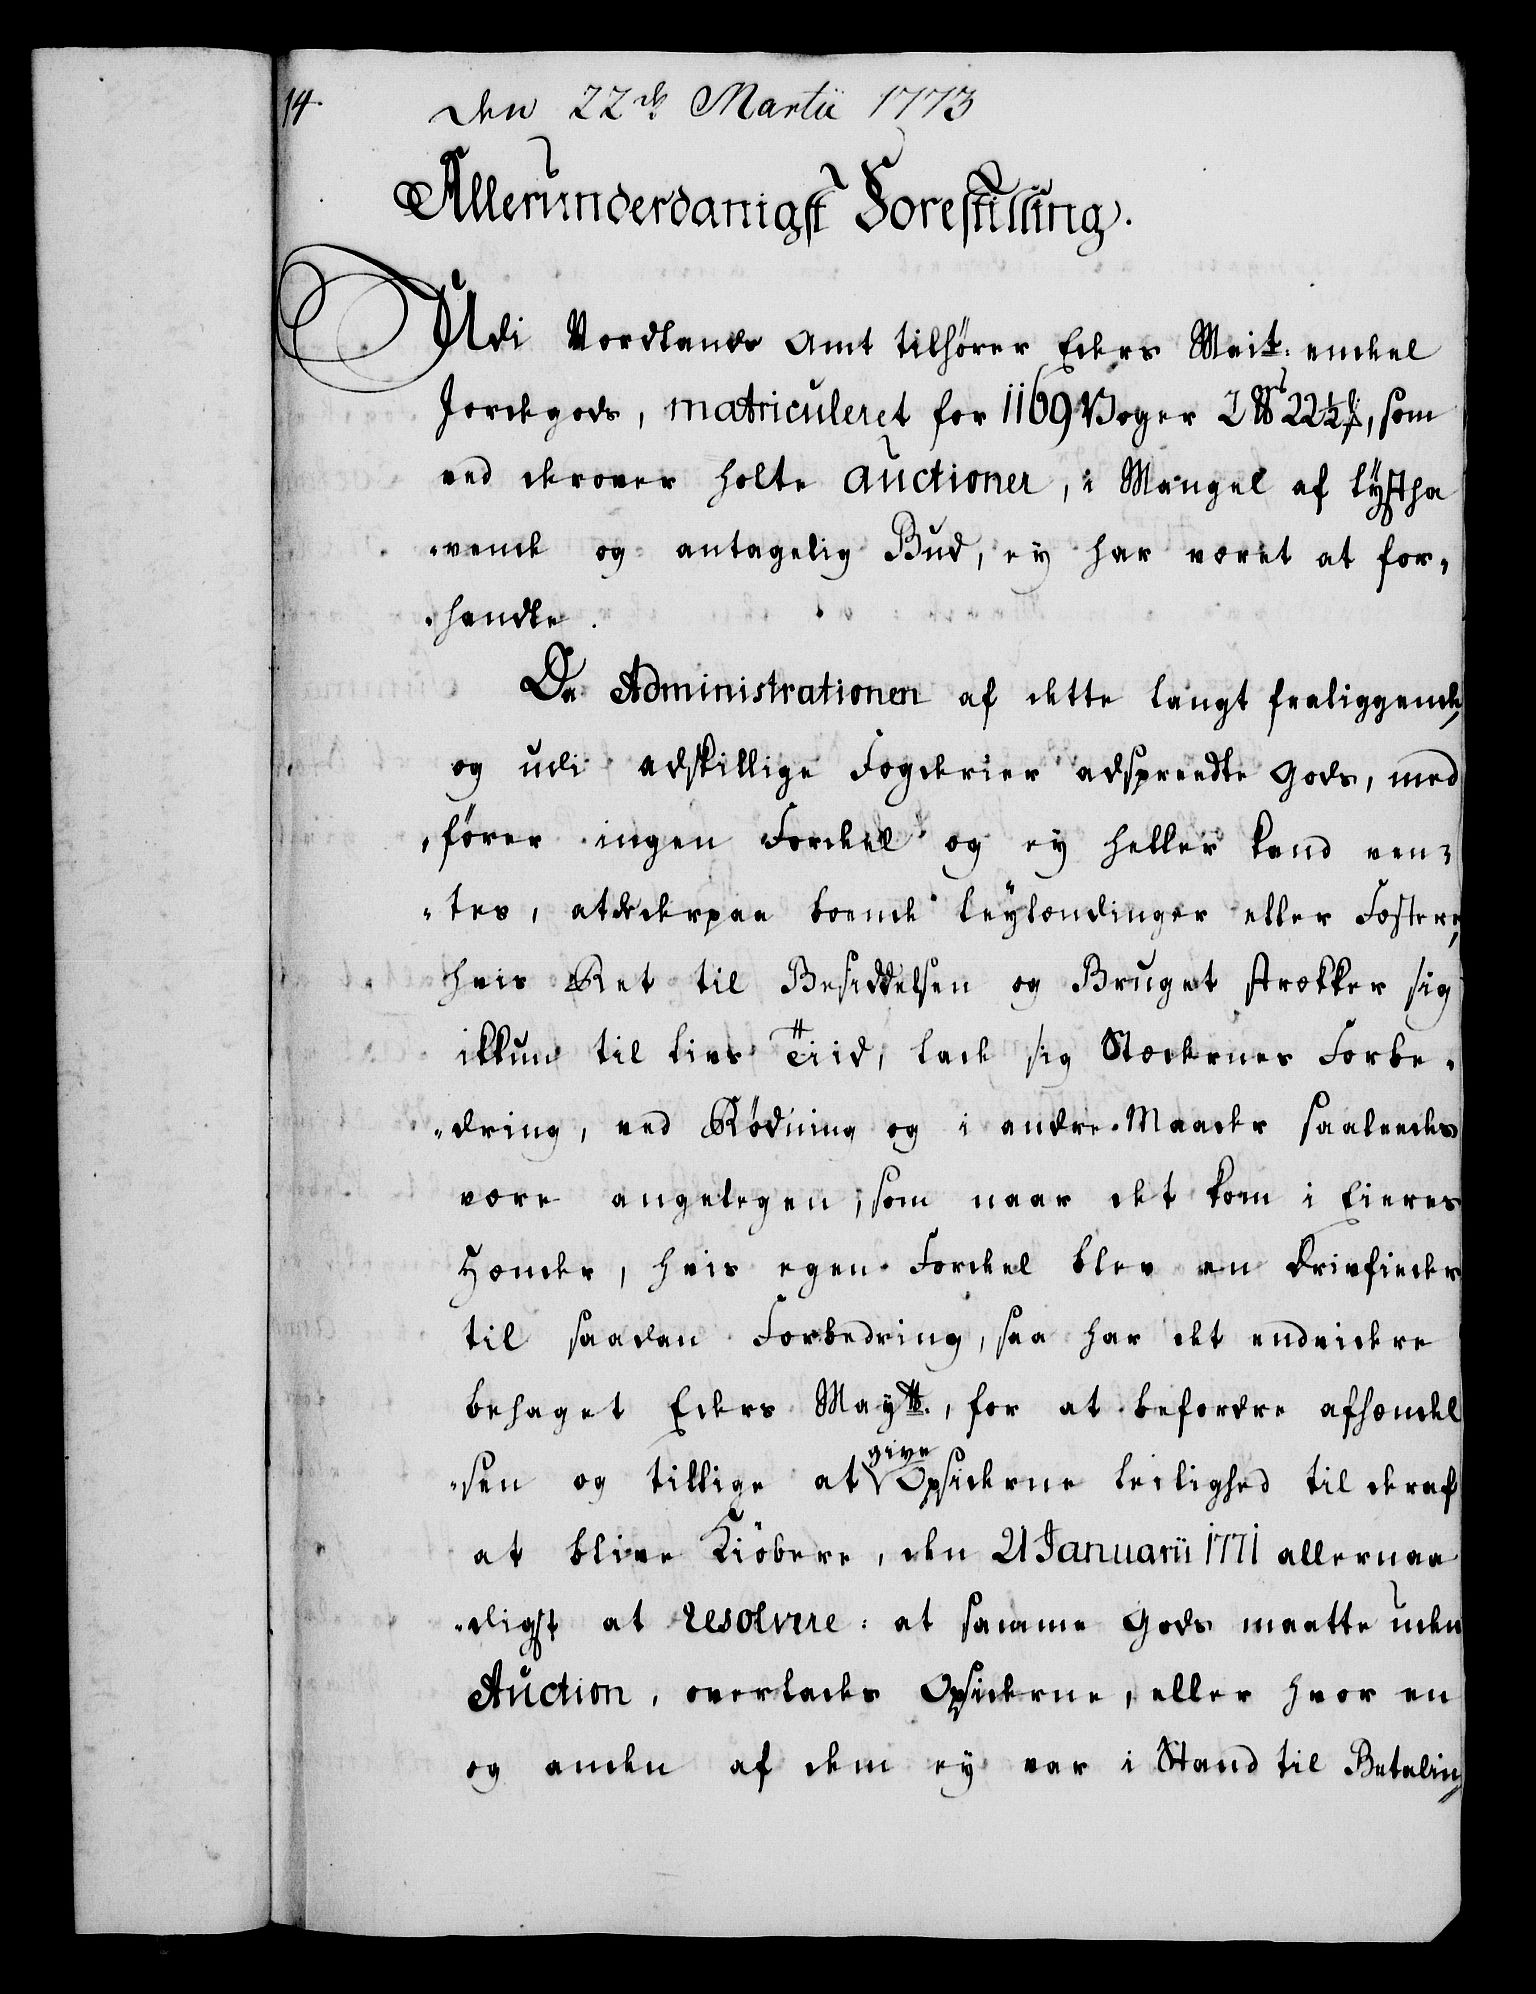 14.
Den 22de Martii 1773
Allerunderdanigst Forestilling.
Udi Nordlands Amt tilhører Eders Mait: endeel
Jordegods, matriculeret for 1169 Voger 2 22½, som
ved derover holte Auctioner, i Mangel af lystha
"vende og antagelig Bud, ey har været at for"
"handle.
Da Administrationen af dette langt fraliggende,
og udi adskillige Fogderier adspreedte Gods, med
"fører ingen Fordeel og ey heller kand ven"
"tes, at de derpaa boende leylændinger eller Fæstere,
hvis Ret til Besiddelsen og Bruget strækker sig
ikkun til livs Tiid, lade sig Stædernes Forbe"
"dring, ved Rödning og i andre Maader saaleedes
være angelegen, som naar det kom i Eieres
Hænder, hvis egen Fordeel blev en Drivfieder
til saadan Forbedring, saa har det endvidere
behaget Eders Maytt., for at befordre afhændel
"sen og tillige at give Opsiderne leilighed til deraf
at blive Kiöbere, den 21 Januarii 1771 allernaa
"digst at resolvere: at samme Gods maatte uden
Auction, overlades Opsiderne, eller hvor en
og anden af dem ey var i Stand til Betaling,